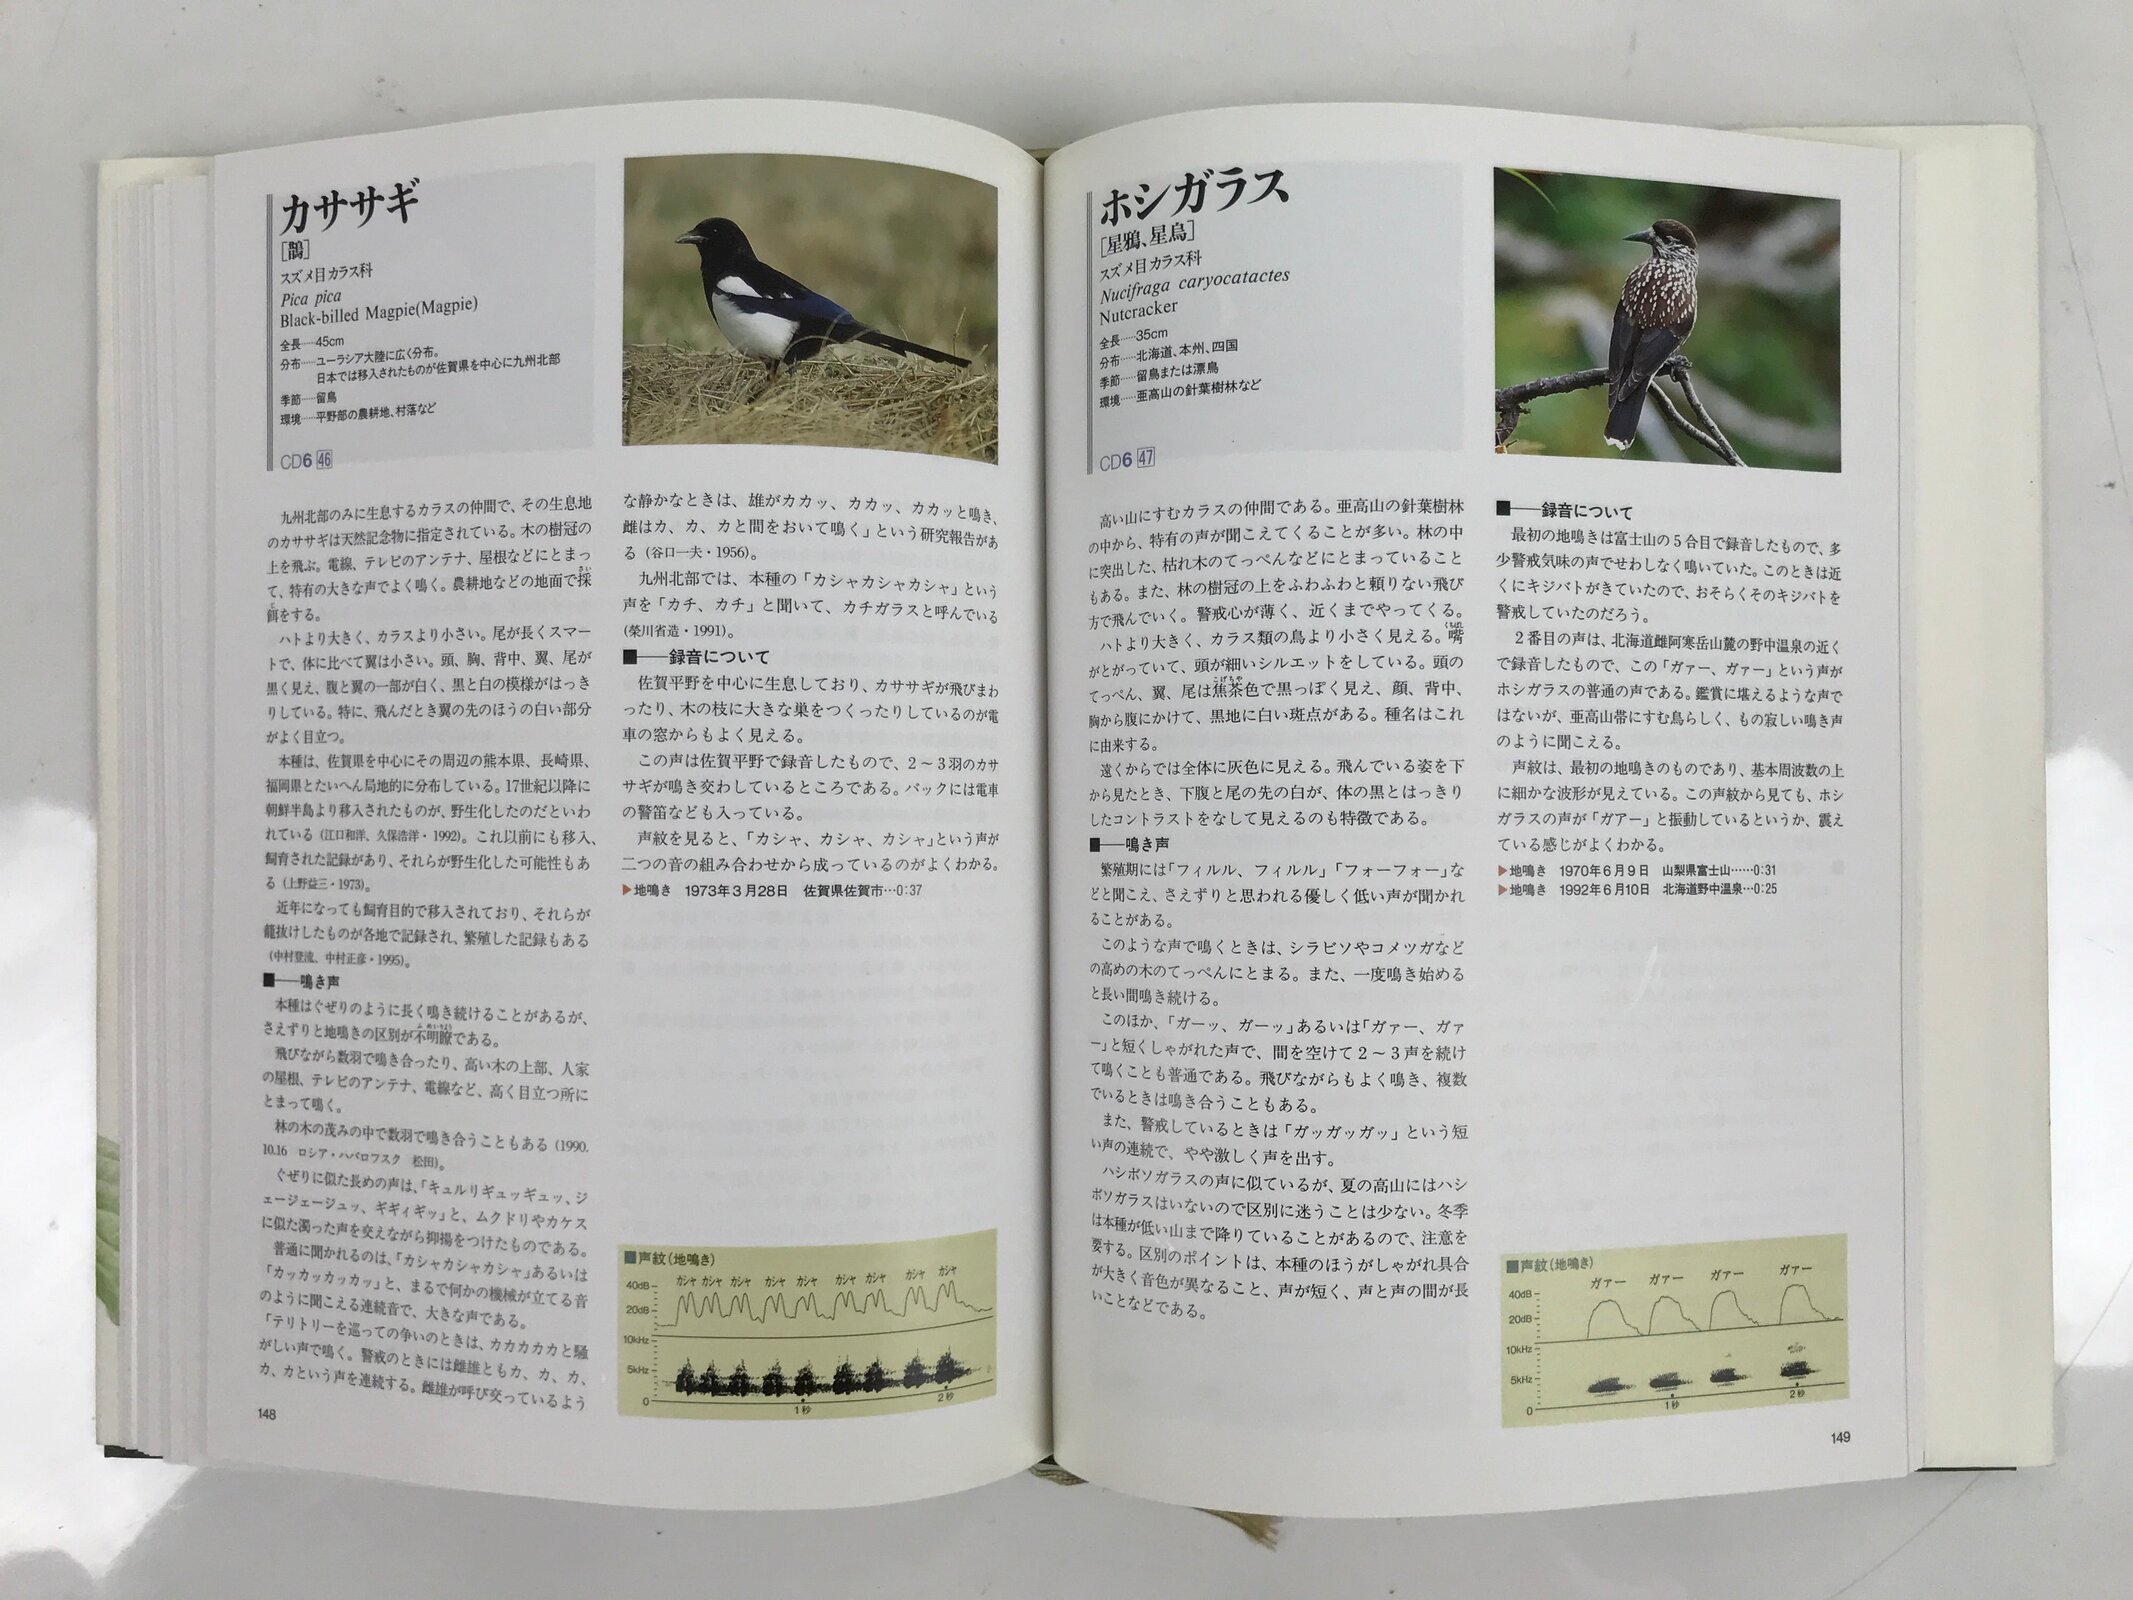 カササギ
[鵲]
スズメ目カラス科
Pica pica
Black-billed Magpie(Magpie)
全長……45cm
分布……ユーラシア大陸に広く分布。
日本では移入されたものが佐賀県を中心に九州北部
季節……留鳥
環境……平野部の農耕地、村落など
CD6 46
九州北部のみに生息するカラスの仲間で、その生息地
のカササギは天然記念物に指定されている。木の樹冠の
上を飛ぶ。電線、テレビのアンテナ、屋根などにとまっ
て、特有の大きな声でよく鳴く。農耕地などの地面で採
餌をする。
ハトより大きく、カラスより小さい。尾が長くスマー
トで、体に比べて翼は小さい。頭、胸、背中、翼、尾が
黒く見え、腹と翼の一部が白く、黒と白の模様がはっき
りしている。特に、飛んだとき翼の先のほうの白い部分
がよく目立つ。
本種は、佐賀県を中心にその周辺の熊本県、長崎県、
福岡県とたいへん局地的に分布している。17世紀以降に
朝鮮半島より移入されたものが、野生化したのだといわ
れている（江口和洋、久保浩洋・1992）。これ以前にも移入、
飼育された記録があり、それらが野生化した可能性もあ
る（上野益三・1973）。
近年になっても飼育目的で移入されており、それらが
籠抜けしたものが各地で記録され、繁殖した記録もある
（中村登流、中村正彦・1995）。
■――鳴き声
本種はぐぜりのように長く鳴き続けることがあるが、
さえずりと地鳴きの区別が不明瞭である。
飛びながら数羽で鳴き合ったり、高い木の上部、人家
の屋根、テレビのアンテナ、電線など、高く目立つ所に
とまって鳴く。
林の木の茂みの中で数羽で鳴き合うこともある（1990.
10.16 ロシア・ハバロフスク 松田）。
ぐぜりに似た長めの声は、「キュルリギュッギュッ、ジ
ェージェージュッ、ギギィギッ」と、ムクドリやカケス
に似た濁った声を交えながら抑揚をつけたものである。
普通に聞かれるのは、「カシャカシャカシャ」あるいは
「カッカッカッカッ」と、まるで何かの機械が立てる音
のように聞こえる連続音で、大きな声である。
「テリトリーを巡っての争いのときは、カカカカカと騒
がしい声で鳴く。警戒のときには雌雄ともカ、カ、カ、
カ、カという声を連続する。雌雄が呼び交っているよう
148
な静かなときは、雄がカカッ、カカッ、カカッと鳴き、
雌はカ、カ、カと間をおいて鳴く」という研究報告があ
る（谷口一夫・1956）。
九州北部では、本種の「カシャカシャカシャ」という
声を「カチ、カチ」と聞いて、カチガラスと呼んでいる
（榮川省造・1991）。
■――録音について
佐賀平野を中心に生息しており、カササギが飛びまわ
ったり、木の枝に大きな巣をつくったりしているのが電
車の窓からもよく見える。
この声は佐賀平野で録音したもので、2～3羽のカサ
サギが鳴き交わしているところである。バックには電車
の警笛なども入っている。
声紋を見ると、「カシャ、カシャ、カシャ」という声が
二つの音の組み合わせから成っているのがよくわかる。
▶地鳴き 1973年3月28日 佐賀県佐賀市…0:37
■声紋（地鳴き）
カシャ カシャ カシャ カシャ カシャ カシャ カシャ カシャ カシャ
40dB
20dB
10kHz
5kHz
0
1秒
2秒
ホシガラス
[星鴉、星烏]
スズメ目カラス科
Nucifraga caryocatactes
Nutcracker
全長……35cm
分布……北海道、本州、四国
季節……留鳥または漂鳥
環境……亜高山の針葉樹林など
CD6 47
高い山にすむカラスの仲間である。亜高山の針葉樹林
の中から、特有の声が聞こえてくることが多い。林の中
に突出した、枯れ木のてっぺんなどにとまっていること
もある。また、林の樹冠の上をふわふわと頼りない飛び
方で飛んでいく。警戒心が薄く、近くまでやってくる。
ハトより大きく、カラス類の鳥より小さく見える。嘴
がとがっていて、頭が細いシルエットをしている。頭の
てっぺん、翼、尾は焦茶色で黒っぽく見え、顔、背中、
胸から腹にかけて、黒地に白い斑点がある。種名はこれ
に由来する。
遠くからでは全体に灰色に見える。飛んでいる姿を下
から見たとき、下腹と尾の先の白が、体の黒とはっきり
したコントラストをなして見えるのも特徴である。
■――鳴き声
繁殖期には「フィルル、フィルル」「フォーフォー」な
どと聞こえ、さえずりと思われる優しく低い声が聞かれ
ることがある。
このような声で鳴くときは、シラビソやコメツガなど
の高めの木のてっぺんにとまる。また、一度鳴き始める
と長い間鳴き続ける。
このほか、「ガーッ、ガーッ」あるいは「ガァー、ガァ
ー」と短くしゃがれた声で、間を空けて2～3声を続け
て鳴くことも普通である。飛びながらもよく鳴き、複数
でいるときは鳴き合うこともある。
また、警戒しているときは「ガッガッガッ」という短
い声の連続で、やや激しく声を出す。
ハシボソガラスの声に似ているが、夏の高山にはハシ
ボソガラスはいないので区別に迷うことは少ない。冬季
は本種が低い山まで降りていることがあるので、注意を
要する。区別のポイントは、本種のほうがしゃがれ具合
が大きく音色が異なること、声が短く、声と声の間が長
いことなどである。
■――録音について
最初の地鳴きは富士山の5合目で録音したもので、多
少警戒気味の声でせわしなく鳴いていた。このときは近
くにキジバトがきていたので、おそらくそのキジバトを
警戒していたのだろう。
2番目の声は、北海道雌阿寒岳山麓の野中温泉の近く
で録音したもので、この「ガァー、ガァー」という声が
ホシガラスの普通の声である。鑑賞に堪えるような声で
はないが、亜高山帯にすむ鳥らしく、もの寂しい鳴き声
のように聞こえる。
声紋は、最初の地鳴きのものであり、基本周波数の上
に細かな波形が見えている。この声紋から見ても、ホシ
ガラスの声が「ガアー」と振動しているというか、震え
ている感じがよくわかる。
▶地鳴き 1970年6月9日 山梨県富士山……0:31
▶地鳴き 1992年6月10日 北海道野中温泉…0:25
■声紋（地鳴き）
ガァー ガァー ガァー ガァー
40dB
20dB
10kHz
5kHz
0
1秒
2秒
149